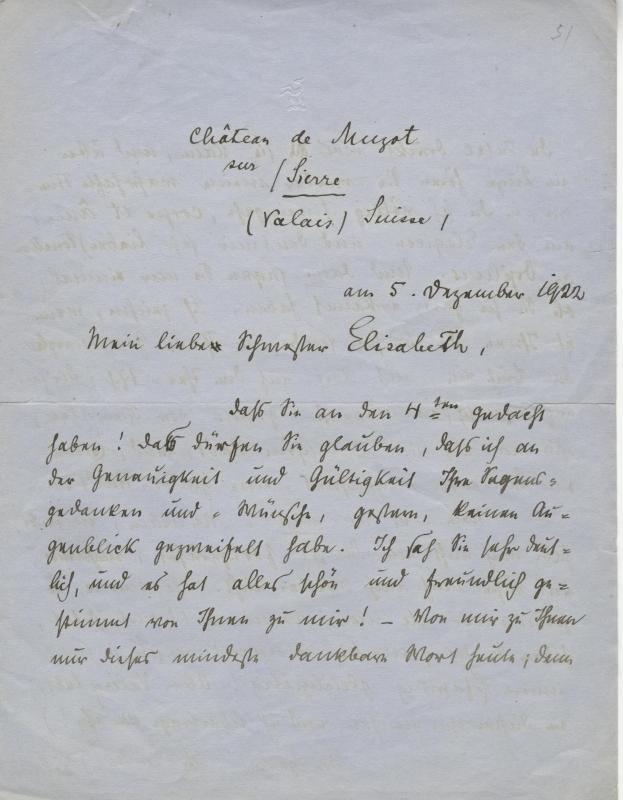 51
Château de Muzot
sur / Sierre
(Valais) Suisse,
am 5. Dezember 1922
Mein liebe Schwester Elisabeth,
daß Sie an den 4ten gedacht
haben! Das dürfen Sie glauben, daß ich an
der Genauigkeit und Gültigkeit Ihre Segens=
gedanken und =Wünsche, gestern, keinen Au=
genblick gezweifelt habe. Ich sah Sie sehr deut=
lich, und es hat alles schön und freundlich ge=
stimmt von Ihnen zu mir! – Von mir zu Ihnen
nur dieses mindeste dankbare Wort heute; denn